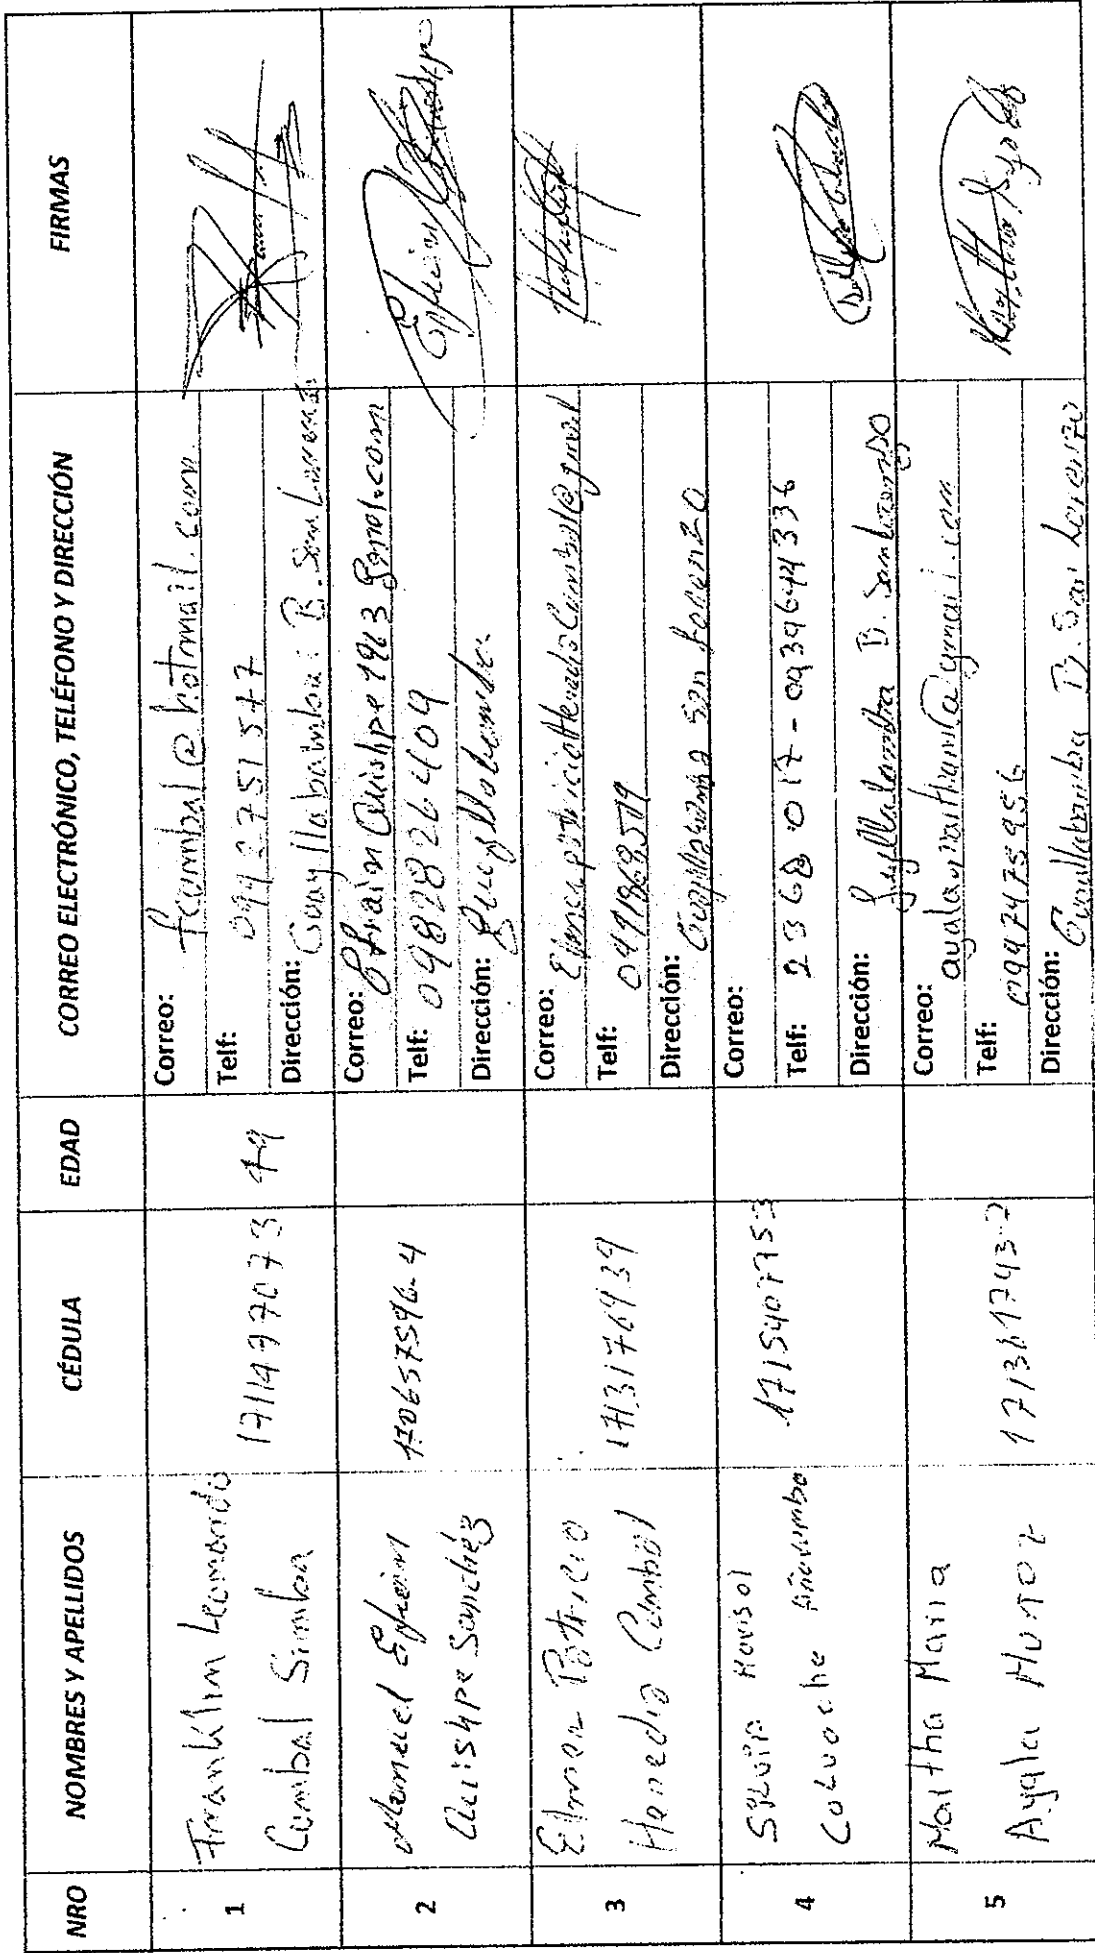 NRO NOMBRES Y APELLIDOS CÉDULA EDAD CORREO ELECTRÓNICO, TELÉFONO Y DIRECCIÓN FIRMAS
1
Franklin Leonardo
Cumbal Simba
1711497073
49
Correo: fcumbal@hotmail.com
Telf: 0992751577
Dirección: Guayllabamba: B. San Lorenzo
2
Manuel Efrain
Quishpe Sanchéz
170657596-4
Correo: Efrain Quishpe 1963 gmail.com
Telf: 0982826409
Dirección: Guayllabamba
3
Elmer Patricio
Heredia Cumbal
1713176939
Correo: ElmerpatricioHerediaCumbal@gmail
Telf: 0991869579
Dirección: Guayllabamba San Lorenzo
4
Marisol
1715407753
Correo:
Telf: 2368 017 - 0939644336
Dirección: Guyllabamba B. San Lorenzo
5
Martha Maria
Ayala Muñoz
171361743-7
Correo: ayalamartham@gmail.com
Telf: 0994759956
Dirección: Guayllabamba B. San Lorenzo